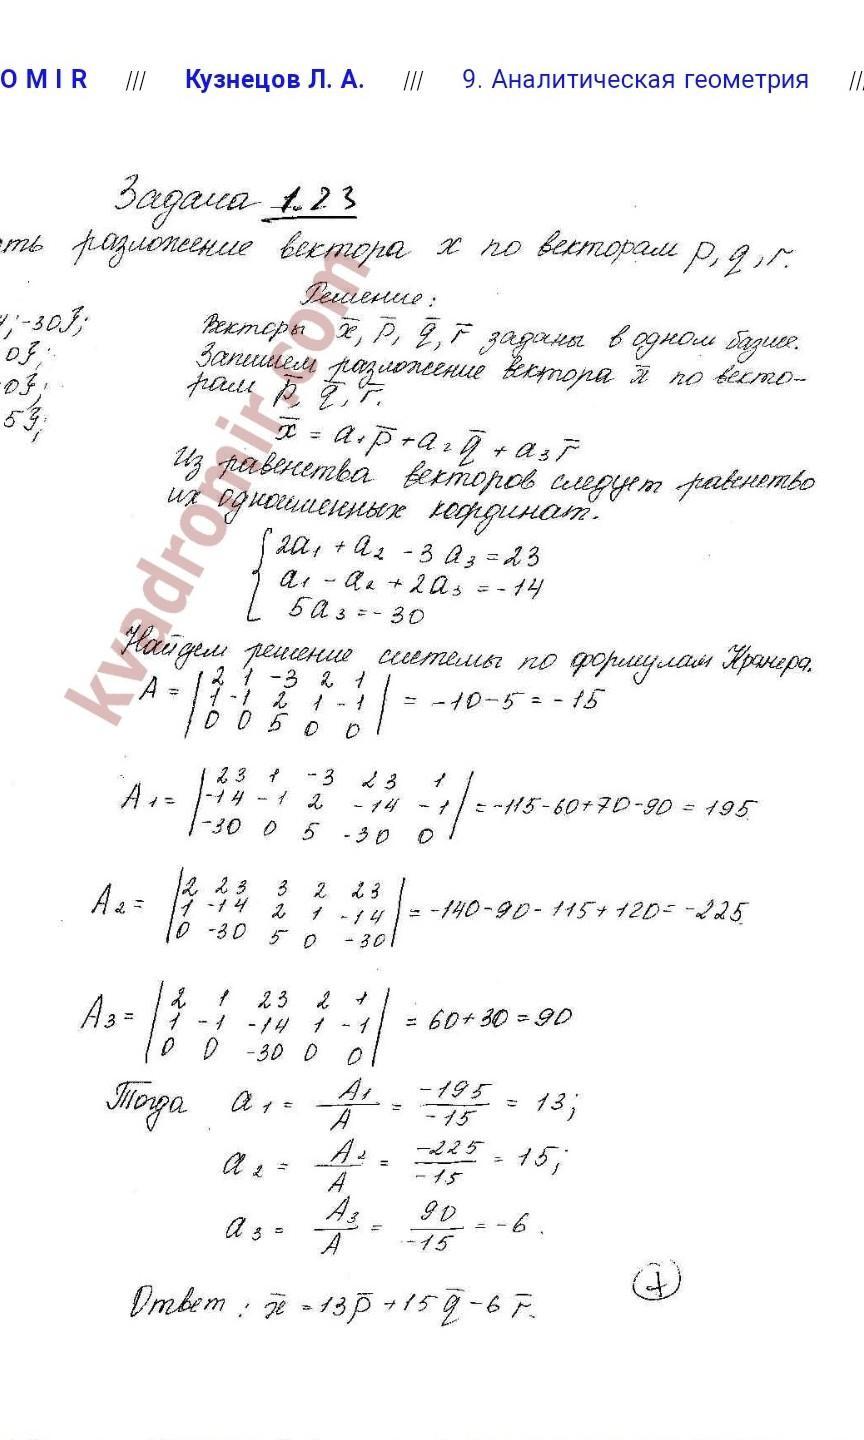 O M I R /// Кузнецов Л. А. /// 9. Аналитическая геометрия //
Задача 1.23
ть разложение вектора x по векторам p, q, r.
Решение:
; -30}; Векторы x̄, p̄, q̄, r̄ заданы в одном базисе.
0}; Запишем разложение вектора x̄ по векто-
0}; рам p̄, q̄, r̄.
5};
x̄ = a₁p̄ + a₂q̄ + a₃r̄
Из равенства векторов следует равенство
их одноименных координат.
2a₁ + a₂ - 3a₃ = 23
a₁ - a₂ + 2a₃ = -14
5a₃ = -30
Найдем решение системы по формулам Крамера.
A = | 2 1 -3 2 1 |
| 1 -1 2 1 -1 | = -10-5 = -15
| 0 0 5 0 0 |
A₁ = | 23 1 -3 23 1 |
| -14 -1 2 -14 -1 | = -115-60+70-90 = 195
| -30 0 5 -30 0 |
A₂ = | 2 23 3 2 23 |
| 1 -14 2 1 -14 | = -140-90-115+120 = -225
| 0 -30 5 0 -30 |
A₃ = | 2 1 23 2 1 |
| 1 -1 -14 1 -1 | = 60+30 = 90
| 0 0 -30 0 0 |
Тогда a₁ = A₁/A = -195/-15 = 13;
a₂ = A₂/A = -225/-15 = 15;
a₃ = A₃/A = 90/-15 = -6.
Ответ: x̄ = 13p̄ + 15q̄ - 6r̄.
kvadromir.com